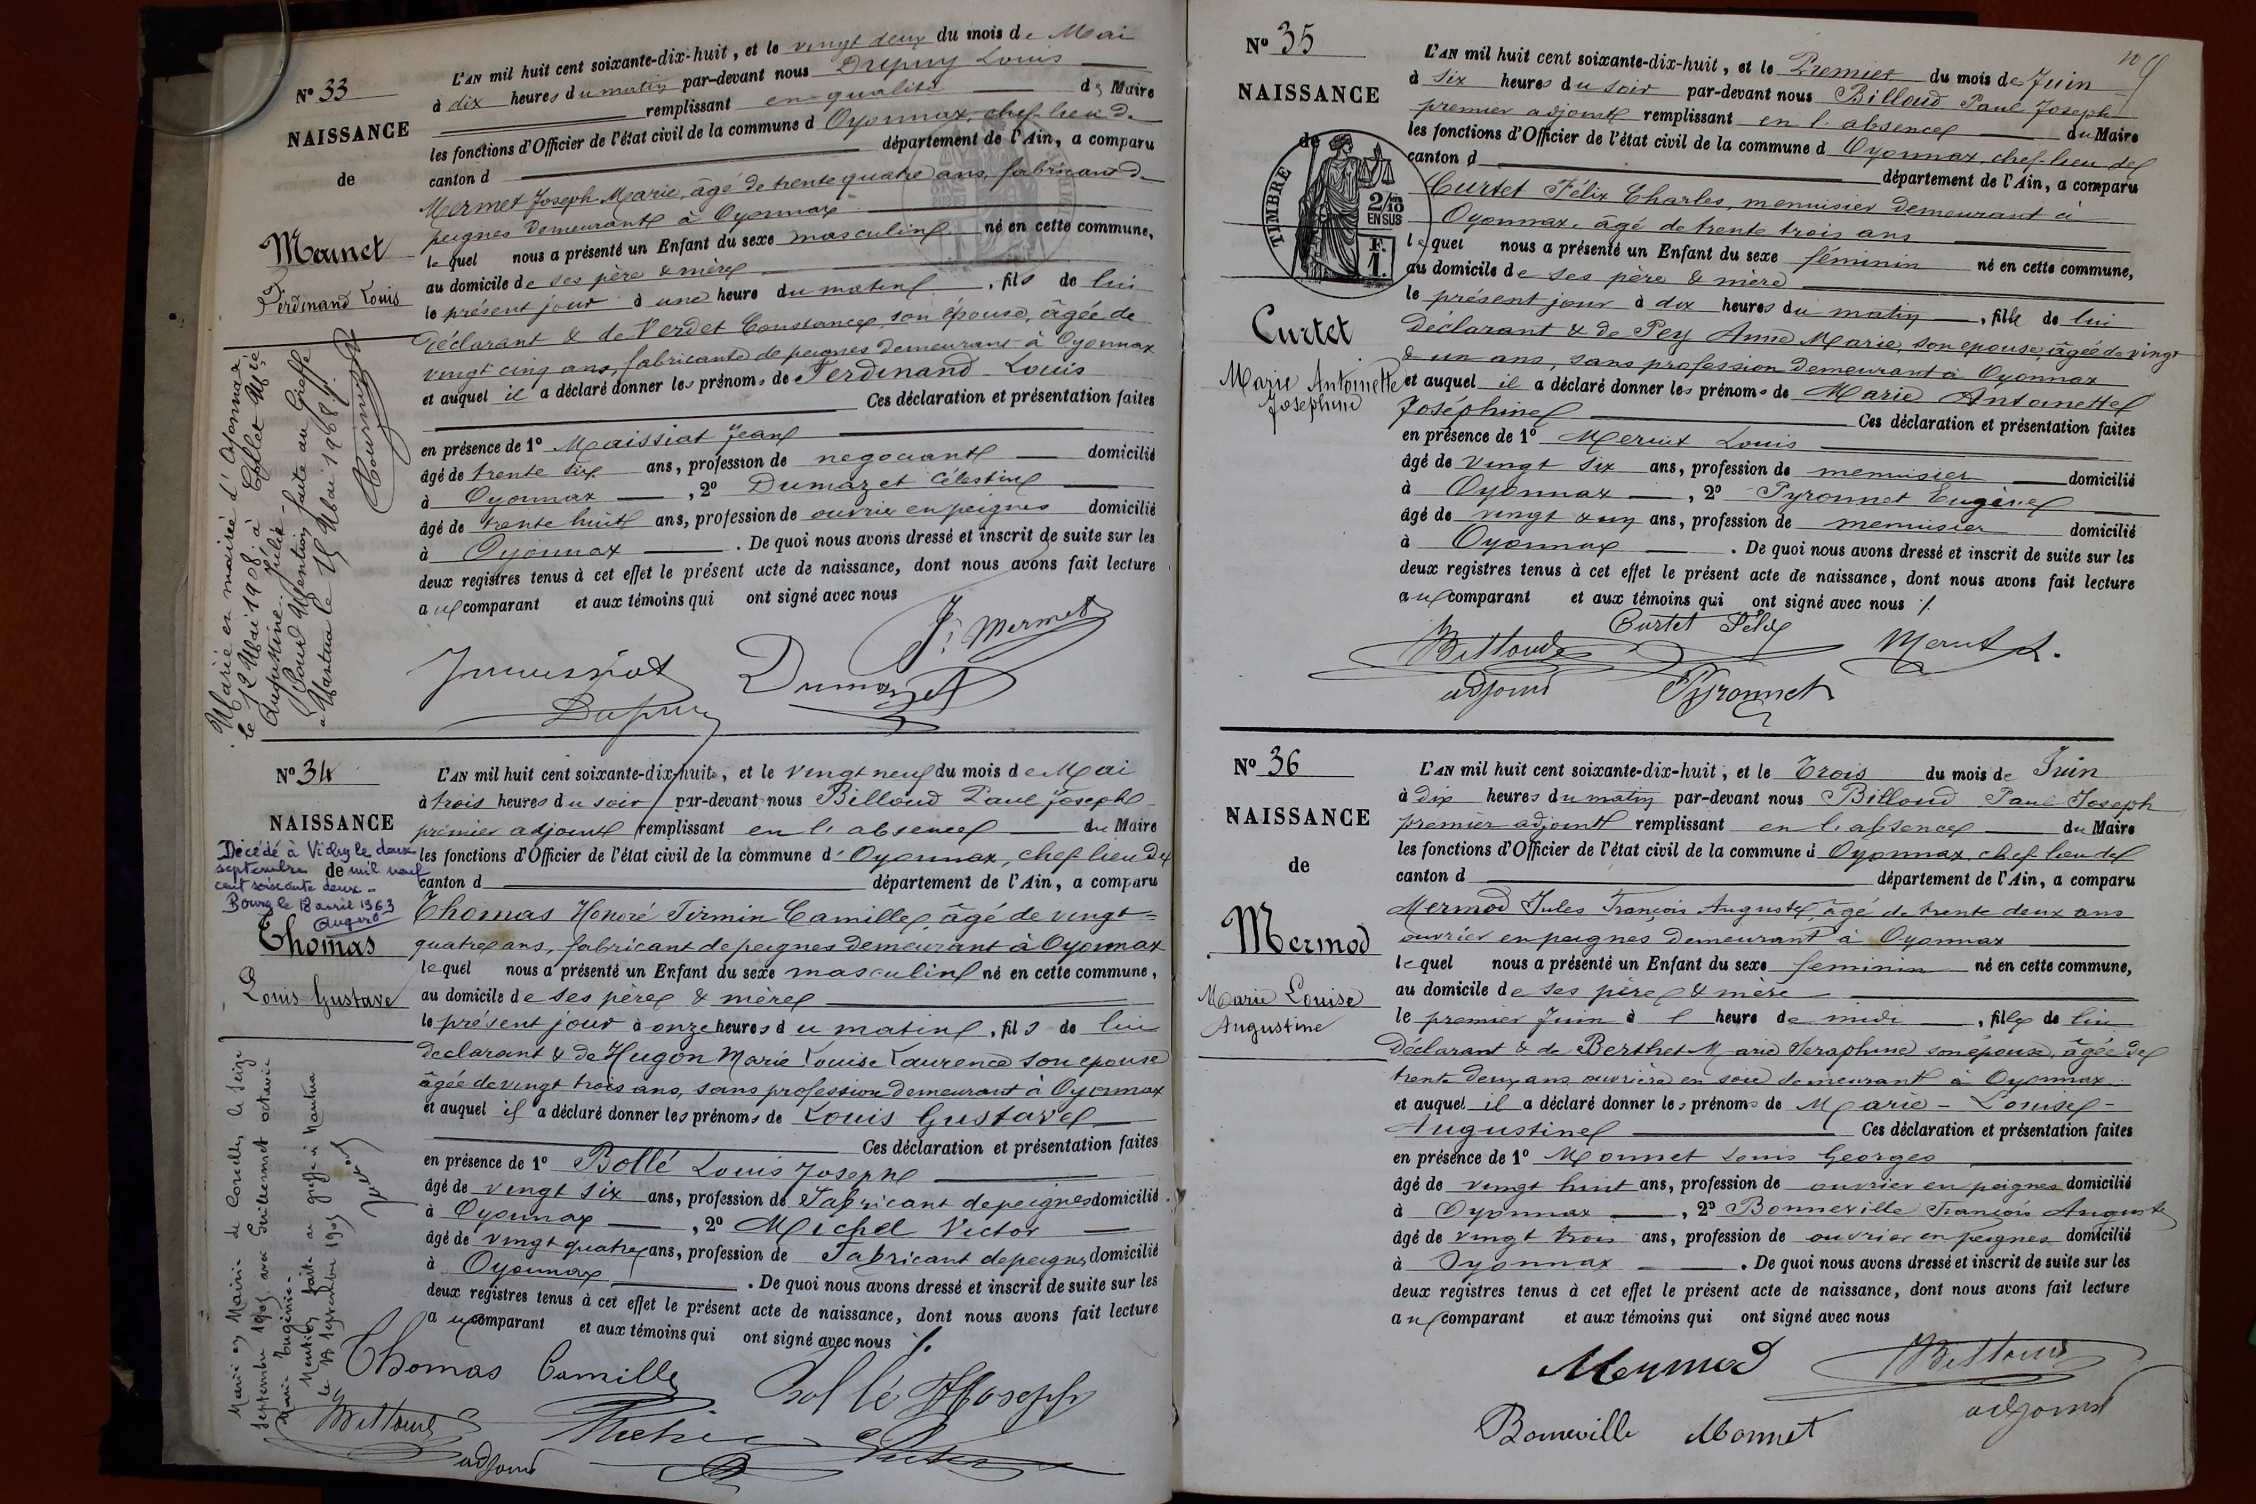 N° 33
NAISSANCE
de
Ferdinand Louis
Marié en mairie d'Oyonnax
le 12 Mai 1908 à Collet Mie
Augustine Julie
Pour Mention faite au Greffe
Nantua le 15 Mai 1908
L'AN mil huit cent soixante-dix-huit, et le vingt deux du mois de Mai
à dix heures du matin par-devant nous Dupuy Louis
remplissant en qualité de Maire
les fonctions d'Officier de l'état civil de la commune d Oyonnax, chef-lieu de
canton d département de l'Ain, a comparu
Mermet Joseph Marie, âgé de trente quatre ans, fabricant de
peignes demeurant à Oyonnax
lequel nous a présenté un Enfant du sexe masculin né en cette commune,
au domicile de ses père & mère
le présent jour à une heure du matin, fils de lui
déclarant & de Verdet Constance, son épouse, âgée de
vingt cinq ans, fabricante de peignes demeurant à Oyonnax
et auquel il a déclaré donner les prénoms de Ferdinand-Louis
Ces déclaration et présentation faites
en présence de 1° Maissiat Jean
âgé de trente six ans, profession de négociant domicilié
à Oyonnax, 2° Dumazet Célestin
âgé de trente huit ans, profession de ouvrier en peignes domicilié
à Oyonnax. De quoi nous avons dressé et inscrit de suite sur les
deux registres tenus à cet effet le présent acte de naissance, dont nous avons fait lecture
au comparant et aux témoins qui ont signé avec nous
J. Mermet
Jn Maissiat Dumazet
Dupuy
N° 34
NAISSANCE
de
Décédé à Vichy le deux
septembre mil neuf
cent soixante deux.
Bourg le 18 avril 1963
Thomas
Louis Gustave
Marié en Mairie de Corcelles le seize
septembre 1905 avec Guillermet Octavie
Marie Eugénie.
Mention faite au greffe à Nantua
le 18 septembre 1905
L'AN mil huit cent soixante-dix-huit, et le vingt neuf du mois de Mai
à trois heures du soir par-devant nous Billoud Paul Joseph
premier adjoint remplissant en l'absence du Maire
les fonctions d'Officier de l'état civil de la commune d'Oyonnax, chef-lieu de
canton d département de l'Ain, a comparu
Thomas Honoré Firmin Camille, âgé de vingt-
quatre ans, fabricant de peignes demeurant à Oyonnax
lequel nous a présenté un Enfant du sexe masculin né en cette commune,
au domicile de ses père & mère
le présent jour à onze heures du matin, fils de lui
déclarant & de Hugon Marie Louise Laurence son épouse
âgée de vingt trois ans, sans profession demeurant à Oyonnax
et auquel il a déclaré donner les prénoms de Louis Gustave
Ces déclaration et présentation faites
en présence de 1° Bollé Louis Joseph
âgé de vingt six ans, profession de Fabricant de peignes domicilié
à Oyonnax, 2° Michel Victor
âgé de vingt quatre ans, profession de Fabricant de peignes domicilié
à Oyonnax. De quoi nous avons dressé et inscrit de suite sur les
deux registres tenus à cet effet le présent acte de naissance, dont nous avons fait lecture
au comparant et aux témoins qui ont signé avec nous ./.
Thomas Camille Bollé Joseph
Billoud
adjoint
N° 35
NAISSANCE
de
TIMBRE
2/10 EN SUS
F. 1.
Curtet
Marie Antoinette
Joséphine
L'AN mil huit cent soixante-dix-huit, et le Premier du mois de Juin
à six heures du soir par-devant nous Billoud Paul Joseph
premier adjoint remplissant en l'absence du Maire
les fonctions d'Officier de l'état civil de la commune d Oyonnax, chef-lieu de
canton d département de l'Ain, a comparu
Curtet Félix Charles, menuisier demeurant à
Oyonnax, âgé de trente trois ans
lequel nous a présenté un Enfant du sexe féminin né en cette commune,
au domicile de ses père & mère
le présent jour à dix heures du matin, fille de lui
déclarant & de Pey Anne Marie, son épouse, âgée de vingt
& un ans, sans profession demeurant à Oyonnax
et auquel il a déclaré donner les prénoms de Marie Antoinette
Joséphine Ces déclaration et présentation faites
en présence de 1° Louis
âgé de vingt six ans, profession de menuisier domicilié
à Oyonnax, 2° Pyronnet Eugène
âgé de vingt & un ans, profession de menuisier domicilié
à Oyonnax. De quoi nous avons dressé et inscrit de suite sur les
deux registres tenus à cet effet le présent acte de naissance, dont nous avons fait lecture
au comparant et aux témoins qui ont signé avec nous ./.
Curtet Félix
Billoud
adjoint Pyronnet
N° 36
NAISSANCE
de
Mermod
Marie Louise
Augustine
L'AN mil huit cent soixante-dix-huit, et le Trois du mois de Juin
à dix heures du matin par-devant nous Billoud Paul Joseph
premier adjoint remplissant en l'absence du Maire
les fonctions d'Officier de l'état civil de la commune d Oyonnax, chef-lieu de
canton d département de l'Ain, a comparu
Mermod Jules François Auguste, âgé de trente deux ans
ouvrier en peignes demeurant à Oyonnax
lequel nous a présenté un Enfant du sexe féminin né en cette commune,
au domicile de ses père & mère
le premier Juin à l heure de midi, fille de lui
Déclarant & de Berthet Marie Séraphine son épouse, âgée de
trente deux ans ouvrière en soie demeurant à Oyonnax
et auquel il a déclaré donner les prénoms de Marie-Louise-
Augustine Ces déclaration et présentation faites
en présence de 1° Monnet Louis Georges
âgé de vingt huit ans, profession de ouvrier en peignes domicilié
à Oyonnax, 2° Bonneville François Auguste
âgé de vingt trois ans, profession de ouvrier en peignes domicilié
à Oyonnax. De quoi nous avons dressé et inscrit de suite sur les
deux registres tenus à cet effet le présent acte de naissance, dont nous avons fait lecture
au comparant et aux témoins qui ont signé avec nous
Mermod Billoud
Bonneville Monnet adjoint